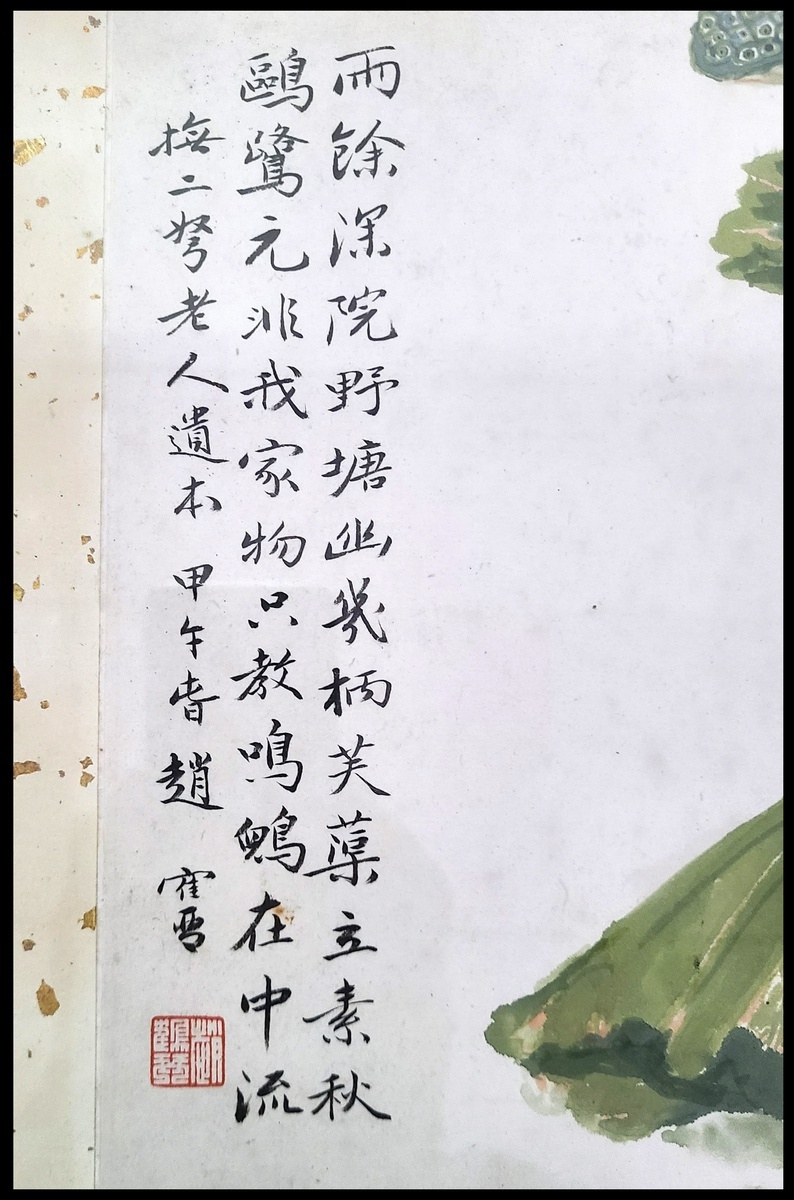 雨餘深院野塘幽幾柄芙蕖立素秋
鷗鷺元非我家物只教鳴在中流
撫二弩老人遺本 甲午旾 趙寉琴
鶴琴